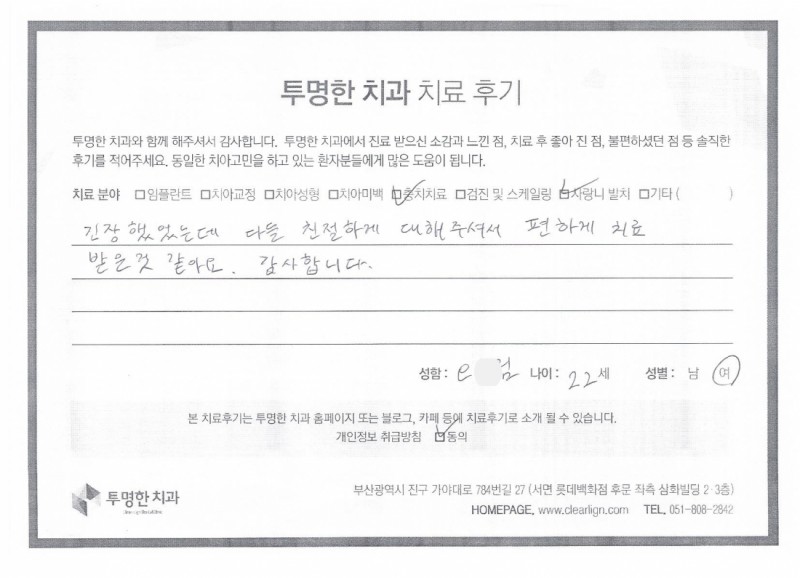 투명한 치과 치료 후기
투명한 치과와 함께 해주셔서 감사합니다. 투명한 치과에서 진료 받으신 소감과 느낀 점, 치료 후 좋아 진 점, 불편하셨던 점 등 솔직한
후기를 적어주세요. 동일한 치아고민을 하고 있는 환자분들에게 많은 도움이 됩니다.
치료 분야 □임플란트 □치아교정 □치아성형 □치아미백 ☑충치치료 □검진 및 스케일링 ☑사랑니 발치 □기타 ( )
긴장했었는데 다들 친절하게 대해주셔서 편하게 치료
받은것 같아요. 감사합니다.
성함: 나이: 22세 성별: 남 여
본 치료후기는 투명한 치과 홈페이지 또는 블로그, 카페 등에 치료후기로 소개 될 수 있습니다.
개인정보 취급방침 ☑동의
투명한 치과
부산광역시 진구 가야대로 784번길 27 (서면 롯데백화점 후문 좌측 심화빌딩 2·3층)
HOMEPAGE. www.clearlign.com TEL. 051-808-2842